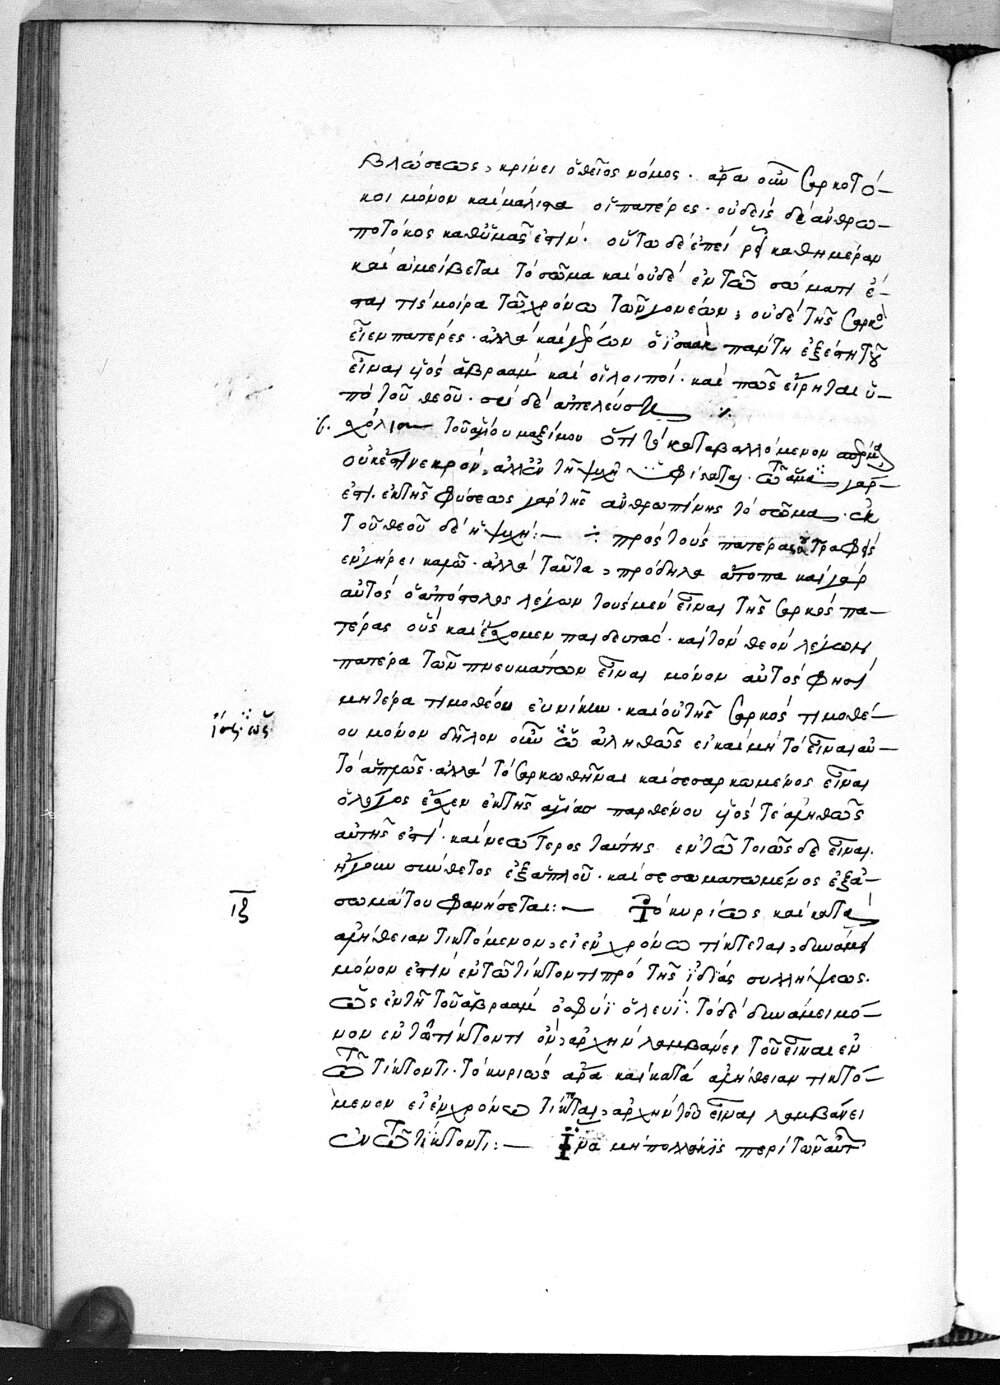 βλώσεως, κρίνει ὁ θεῖος νόμος. ἄρα οὖν σαρκοτό-
κοι μόνον καὶ μάλιστα οἱ πατέρες. οὐδεὶς δὲ ἀνθρω-
ποτόκος καθ' ὑμᾶς ἐστίν. οὕτω δὲ ἐπεὶ ῥεῖ καθημέραν
καὶ ἀμείβεται τὸ σῶμα καὶ οὐδὲ ἐν τῷ σώματι ἔ-
σται τις μοίρα τῷ χρόνῳ τῶν γονέων, οὐδὲ τῆς σαρκὸς
εἶεν πατέρες. ἀλλὰ καὶ ὁ ἰσαὰκ πάντη ἐξέστη τοῦ
εἶναι υἱὸς ἀβραὰμ καὶ οἱ λοιποί. καὶ πῶς εἴρηται ὑ-
πὸ τοῦ θεοῦ. σὺ δὲ ἀπελεύσῃ
σχόλιον τοῦ ἁγίου μαξίμου ὅτι τὸ καταβαλλόμενον σπέρμα
οὐκ ἔστι νεκρὸν, ἀλλ' ἐν τῇ ψυχῇ γάρ
ἐστι. ἐκ τῆς φύσεως γὰρ τῆς ἀνθρωπίνης τὸ σῶμα. ἐκ
τοῦ θεοῦ δὲ ἡ ψυχή:— ÷ πρὸς τοὺς πατέρας τραφεὶς
ἐν γήρει καλῷ. ἀλλὰ ταῦτα, πρόδηλα ἄτοπα καὶ γὰρ
αὐτὸς ὁ ἀπόστολος λέγων τοὺς μὲν εἶναι τῆς σαρκὸς πα-
τέρας οὓς καὶ ἔχομεν παιδευτάς. καὶ τὸν θεὸν λέγων
πατέρα τῶν πνευμάτων εἶναι μόνον αὐτὸς φησὶ
μητέρα τιμοθέου εὐνίκην. καὶ οὐ τῆς σαρκὸς τιμοθέ-
ου μόνον δῆλον οὖν ὡς ἀληθῶς εἰ καὶ μὴ τὸ εἶναι αὐ-
τὸ ἁπλῶς. ἀλλὰ τὸ σαρκωθῆναι καὶ σεσαρκωμένος εἶναι
ὁ λόγος ἔσχεν ἐκ τῆς ἁγίας παρθένου υἱὸς τε ἀληθῶς
αὐτῆς ἐστί. καὶ νεώτερος ταύτης ἐν τῷ τοιῶσδε εἶναι.
ἤγουν σύνθετος ἐξ ἁπλοῦ. καὶ σεσωματωμένος ἐξ ἀ-
σωμάτου φανήσεται:— Τὸ κυρίως καὶ κατὰ
ἀλήθειαν τικτόμενον, εἰ ἐν χρόνῳ τίκτεται, δυνάμει
μόνον ἐστὶν ἐν τῷ τίκτοντι πρὸ τῆς ἰδίας συλλήψεως.
ὡς ἐν τῇ τοῦ ἀβραὰμ ὀσφύϊ ὁ λευί. τὸ δὲ δυνάμει μό-
νον ἐν τῷ τίκτοντι ὂν, ἀρχὴν λαμβάνει τοῦ εἶναι ἐν
τῷ τίκτοντι. τὸ κυρίως ἄρα καὶ κατὰ ἀλήθειαν τικτό-
μενον εἰ ἐν χρόνῳ τίκτεται, ἀρχὴν τοῦ εἶναι λαμβάνει
ἐν τῷ τίκτοντι:— Ἵνα μὴ πολλάκις περὶ τῶν αὐτ